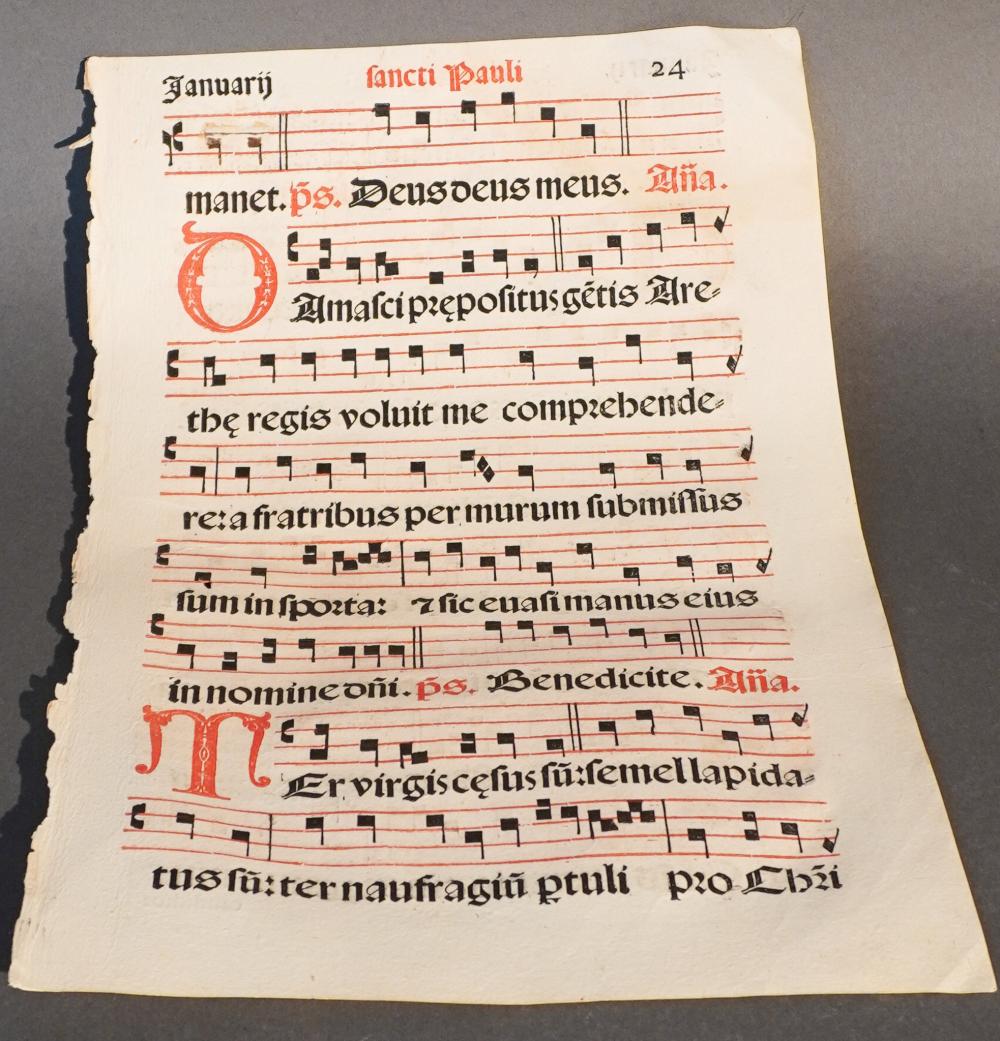 Januarij sancti Pauli 24
manet. p̃s. Deus deus meus. Añа.
DAmasci prępositus gẽtis Are=
thę regis voluit me comprehende=
re: a fratribus per murum submissus
sum in sporta: ⁊ sic euasi manus eius
in nomine dñi. p̃s. Benedicite. Aña.
TEr virgis cęsus sũ: semel lapida=
tus sũ: ter naufragiũ ꝑtuli pro Chr̃i